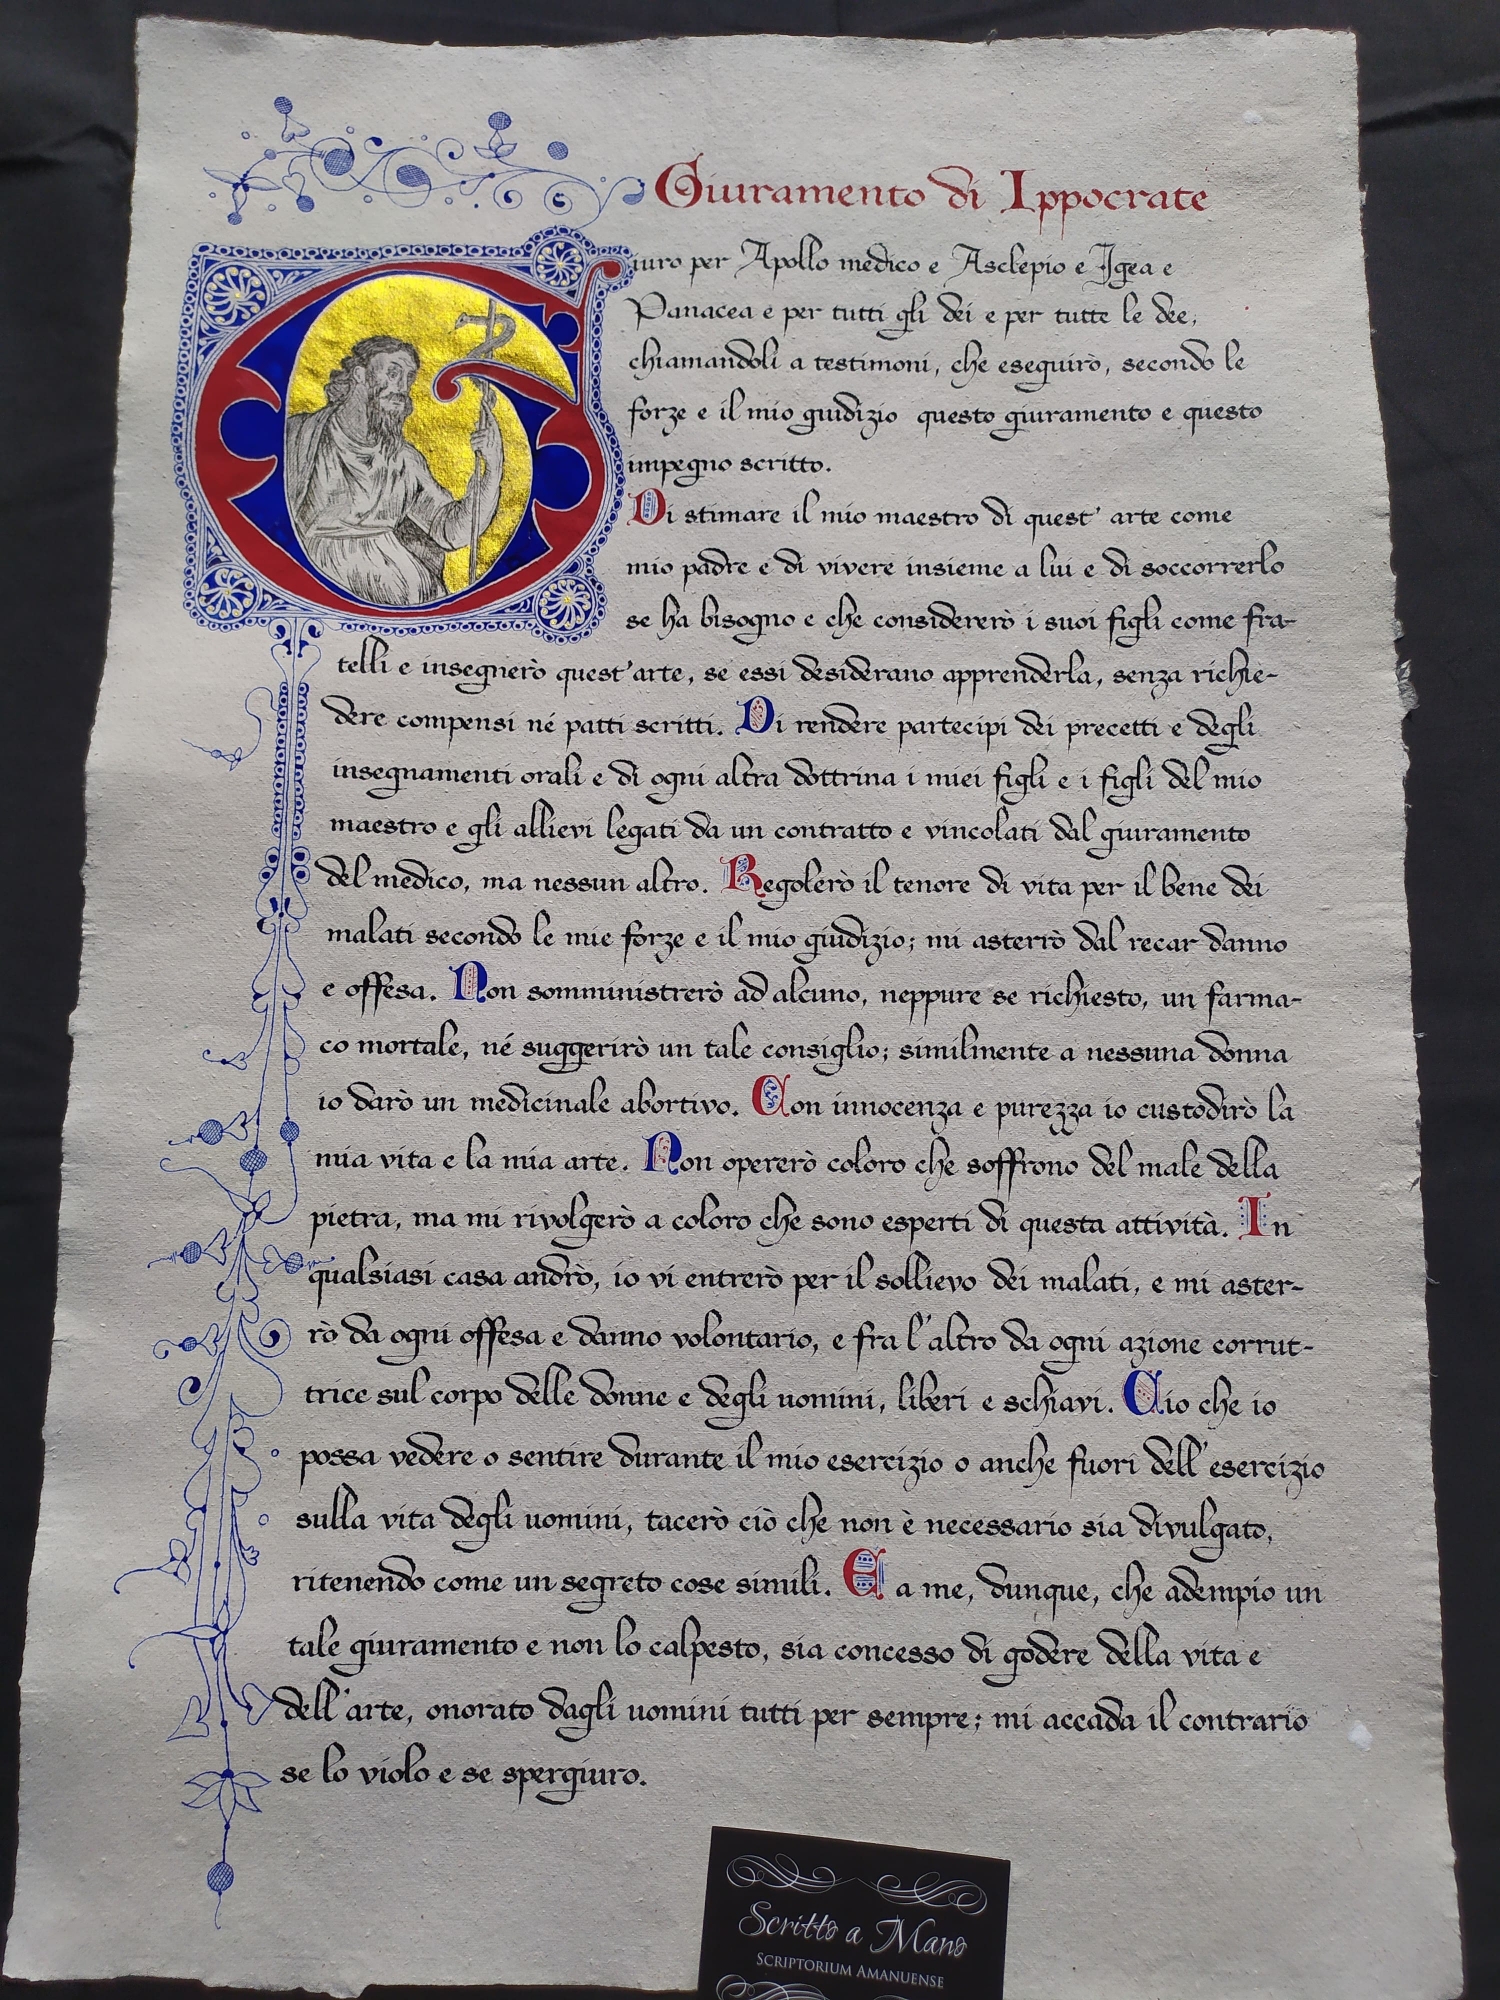 Giuramento di Ippocrate
Giuro per Apollo medico e Asclepio e Igea e
Panacea e per tutti gli dei e per tutte le dee,
chiamandoli a testimoni, che eseguirò, secondo le
forze e il mio giudizio questo giuramento e questo
impegno scritto.
Di stimare il mio maestro di quest' arte come
mio padre e di vivere insieme a lui e di soccorrerlo
se ha bisogno e che considererò i suoi figli come fra-
telli e insegnerò quest'arte, se essi desiderano apprenderla, senza richie-
dere compensi né patti scritti. Di rendere partecipi dei precetti e degli
insegnamenti orali e di ogni altra dottrina i miei figli e i figli del mio
maestro e gli allievi legati da un contratto e vincolati dal giuramento
del medico, ma nessun altro. Regolerò il tenore di vita per il bene dei
malati secondo le mie forze e il mio giudizio; mi asterrò dal recar danno
e offesa. Non somministrerò ad alcuno, neppure se richiesto, un farma-
co mortale, né suggerirò un tale consiglio; similmente a nessuna donna
io darò un medicinale abortivo. Con innocenza e purezza io custodirò la
mia vita e la mia arte. Non opererò coloro che soffrono del male della
pietra, ma mi rivolgerò a coloro che sono esperti di questa attività. In
qualsiasi casa andrò, io vi entrerò per il sollievo dei malati, e mi aster-
rò da ogni offesa e danno volontario, e fra l'altro da ogni azione corrut-
trice sul corpo delle donne e degli uomini, liberi e schiavi. Cio che io
possa vedere o sentire durante il mio esercizio o anche fuori dell'esercizio
sulla vita degli uomini, tacerò ciò che non è necessario sia divulgato,
ritenendo come un segreto cose simili. E a me, dunque, che adempio un
tale giuramento e non lo calpesto, sia concesso di godere della vita e
dell'arte, onorato dagli uomini tutti per sempre; mi accada il contrario
se lo violo e se spergiuro.
Scritto a Mano
SCRIPTORIUM AMANUENSE